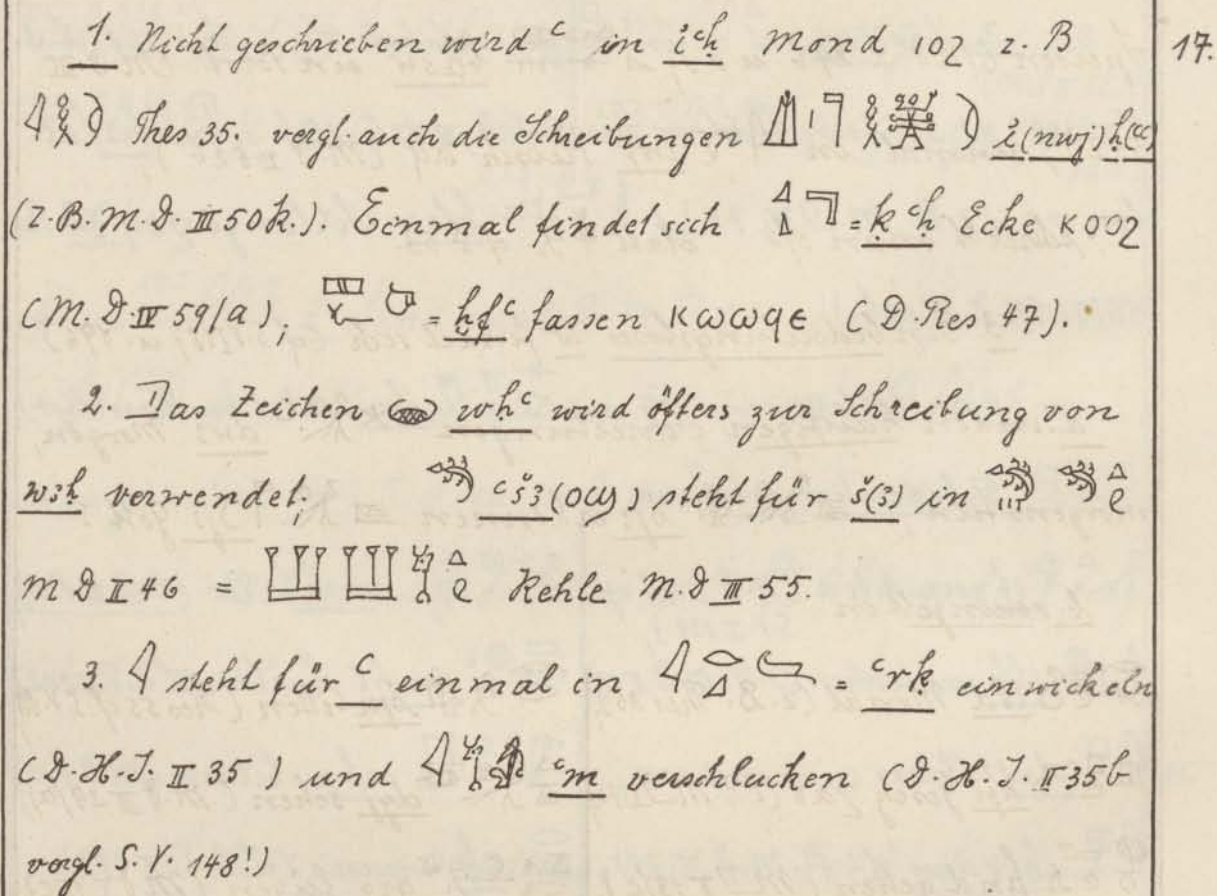 1. Nicht geschrieben wird ꜥ in ỉꜥḥ Mond ıoϩ z. B 17.
𓇋𓎛𓇹 Thes 35. vergl. auch die Schreibungen ỉ(nwj)ḥ(ꜥꜥ)
(z. B. M. D. III 50k.). Einmal findet sich = ḳꜥḥ Ecke ⲕⲟⲟϩ
(M. D. IV 59/a), = ḫfꜥ fassen ⲕⲱⲱϥⲉ (D. Res 47).
2. Das Zeichen whꜥ wird öfters zur Schreibung von
wꜣḥ verwendet; ꜥšꜣ (ⲟϣ) steht für š(ꜣ) in
M D II 46 = Kehle M. D III 55.
3. 𓇋 steht für ꜥ einmal in 𓇋𓂋𓈎 = ꜥrḳ einwickeln
(D. H. J. II 35) und ꜥm verschlucken (D. H. J. II 35b
vergl. S. V. 148!)